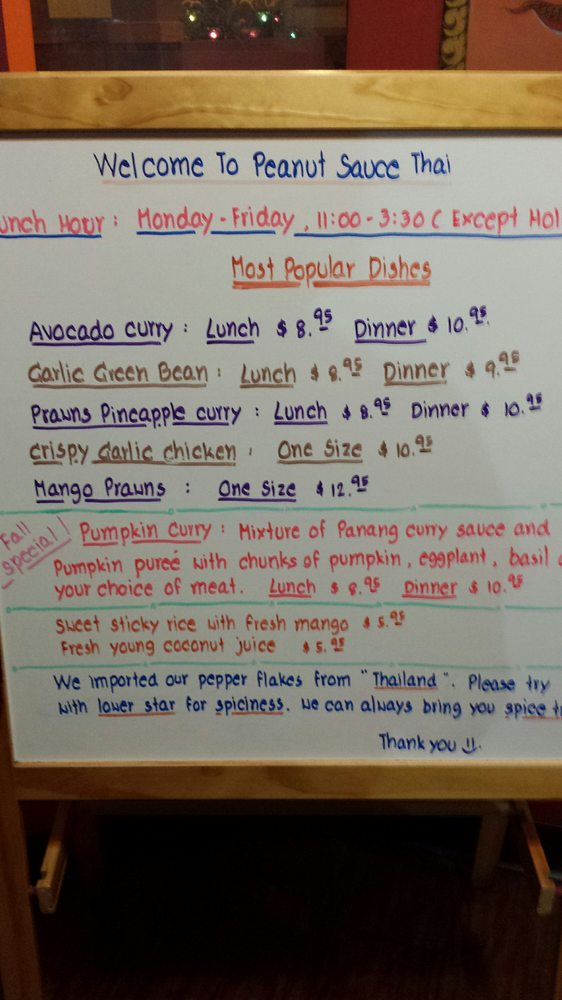 Welcome To Peanut Sauce Thai
unch Hour : Monday - Friday , 11:00 - 3:30 ( Except Hol
Most Popular Dishes
Avocado curry : Lunch $ 8.95 Dinner $ 10.95
Garlic Green Bean : Lunch $ 8.95 Dinner $ 9.95
Prawns Pineapple curry : Lunch $ 8.95 Dinner $ 10.95
crispy Garlic chicken : One Size $ 10.95
Mango Prawns : One Size $ 12.95
Fall special! Pumpkin Curry : Mixture of Panang curry sauce and
Pumpkin pureé with chunks of pumpkin , eggplant , basil
your choice of meat. Lunch $ 8.95 Dinner $ 10.95
Sweet sticky rice with fresh mango $ 5.95
Fresh young coconut juice $ 5.95
We imported our pepper flakes from "Thailand". Please try
with lower star for spiciness. We can always bring you spice
Thank you